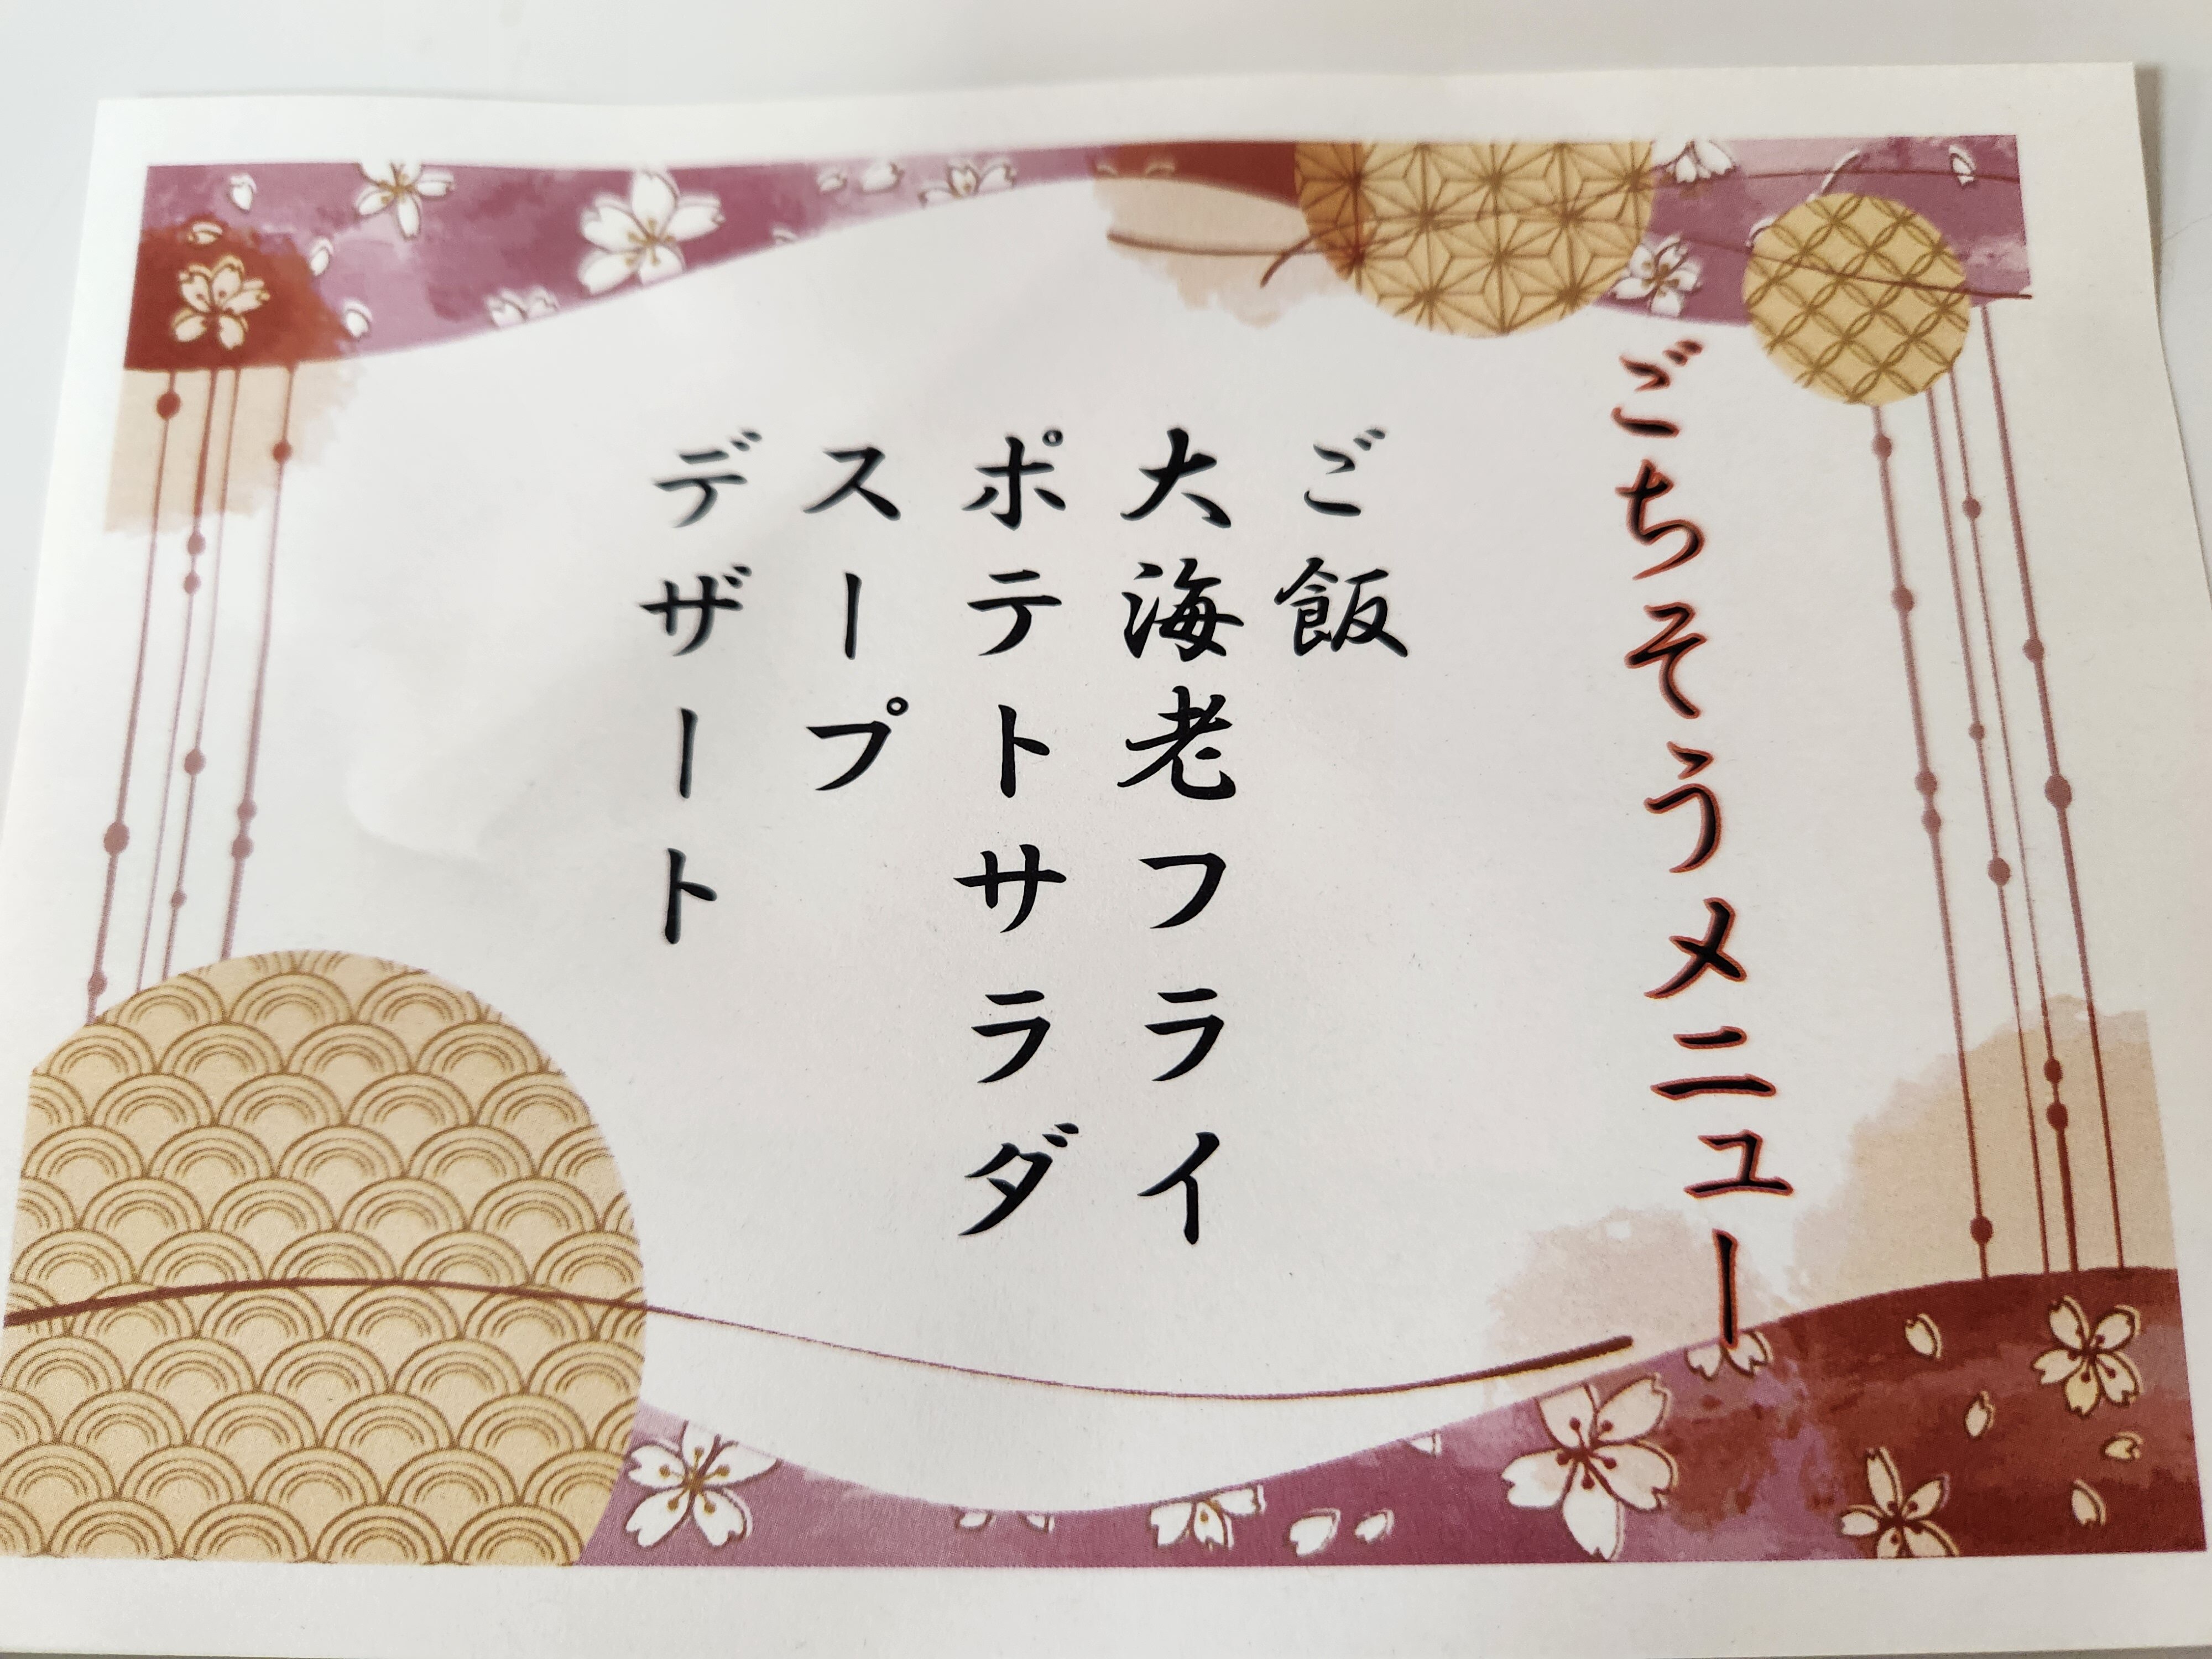 ごちそうメニュー
ご飯
大海老フライ
ポテトサラダ
スープ
デザート